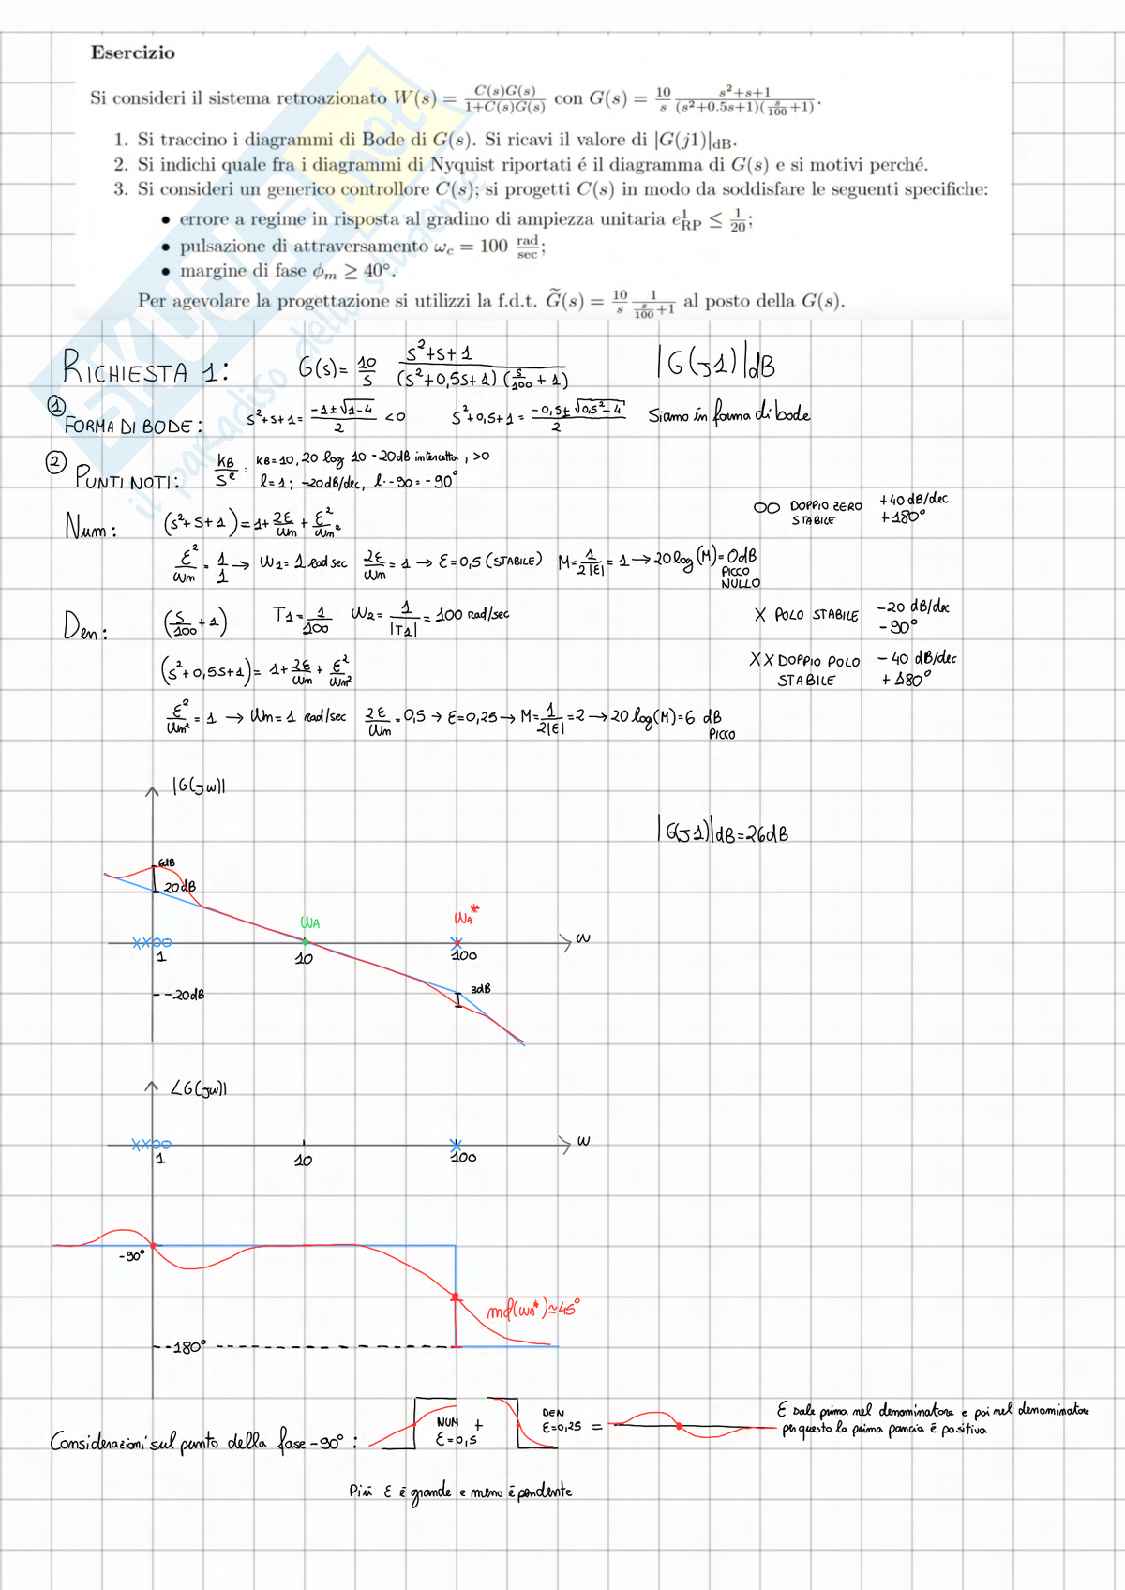 Esercizio
Si consideri il sistema retroazionato W(s) = C(s)G(s)/1+C(s)G(s) con G(s) = 10/s s²+s+1/(s²+0.5s+1)(s/100+1).
1. Si traccino i diagrammi di Bode di G(s). Si ricavi il valore di |G(j1)|dB.
2. Si indichi quale fra i diagrammi di Nyquist riportati é il diagramma di G(s) e si motivi perché.
3. Si consideri un generico controllore C(s); si progetti C(s) in modo da soddisfare le seguenti specifiche:
• errore a regime in risposta al gradino di ampiezza unitaria e¹RP ≤ 1/20;
• pulsazione di attraversamento ωc = 100 rad/sec;
• margine di fase ϕm ≥ 40°.
Per agevolare la progettazione si utilizzi la f.d.t. G̃(s) = 10/s 1/(s/100+1) al posto della G(s).
RICHIESTA 1: G(s)= 10/s s²+s+1/(s²+0,5s+1)(s/100+1) |G(j1)|dB
① FORMA DI BODE: s²+s+1= -1±√1-4/2 <0 s²+0,5+1= -0,5±√0,5²-4/2 Siamo in forma di bode
② PUNTI NOTI: KB/Sˡ : KB=10, 20 log 10 - 20dB intercetta, >0
l=1; -20dB/dec, l·-90=-90°
∞ DOPPIO ZERO STABILE +40dB/dec +180°
Num: (s²+s+1)=1+2ξ/ωn+ξ²/ωn²
ξ²/ωn=1/1 → ω1=1 rad sec 2ξ/ωn=1 → ξ=0,5 (STABILE) M=1/2|ξ|=1 → 20log(M)=0dB
PICCO
NULLO
Den: (s/100+1) T1=1/100 ω2=1/|T1|=100 rad/sec X POLO STABILE -20 dB/dec -90°
(s²+0,5s+1)=1+2ξ/ωn+ξ²/ωn² XX DOPPIO POLO STABILE -40 dB/dec +180°
ξ²/ωn²=1 → ωn=1 rad/sec 2ξ/ωn=0,5 → ξ=0,25 → M=1/2|ξ|=2 → 20 log(M)=6 dB
PICCO
|G(jω)|
|G(j1)|dB=26dB
6dB
20dB
ωA
ωA*
ω
1
10
100
-20dB
3dB
∠G(jω)|
ω
1
10
100
-90°
mφ(ωA*)≃45°
-180°
Considerazioni sul punto della fase -90°: NUM ξ=0,5 + DEN ξ=0,25 =
ξ sale prima nel denominatore e poi nel denominatore
per questo la prima pancia è positiva
Più ξ è grande e meno è pendente